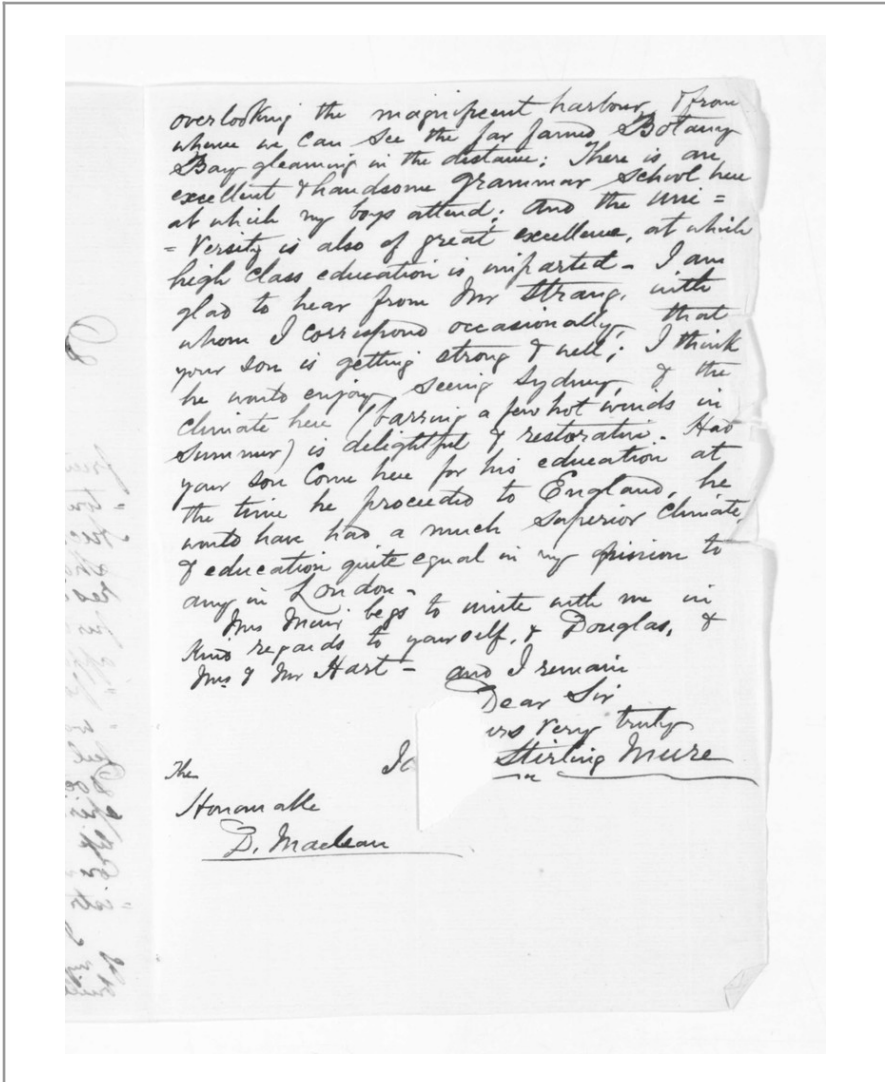 overlooking the magnificent harbour, & from
whence we can see the far famed Botany
Bay gleaming in the distance; There is an
excellent & handsome grammar school here
at which my boys attend; and the uni=
=versity is also of great excellence, at which
high class education is imparted - I am
glad to hear from Mr Strang, with
whom I correspond occasionally, that
your son is getting strong & well; I think
he would enjoy seeing Sydney, & the
climate here (barring a few hot winds in
summer) is delightful & restorative. Had
your son come here for his education at
the time he proceeded to England, he
would have had a much superior climate,
& education quite equal in my opinion to
any in London -
Mrs Muir begs to unite with me in
kind regards to yourself, & Douglas, &
Mrs & Mr Hart - and I remain
Dear Sir
urs very truly
Stirling Mure
The
Honourable
D. Maclean